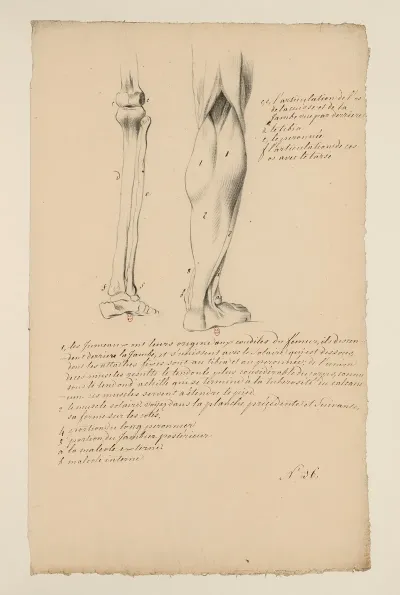 c, c, l'articulation de l'os
de la cuisse et de la
jambe vue par derriere
d, le tibia
e, le peronnée
f, l'articulation de ces
os avec le tarse
1, les jumeaux ont leurs origine aux condiles du femur, ils descen-
dent derriere la jambe, et s'unissent avec le solaire qui est dessous,
dont les attaches fixes sont au tibia et au peronnée, de l'union
de ces muscles resulte le tendon le plus considerable du corps, connu
sous le tendon d'achille qui se termine à la tuberosité du calcane-
um. ces muscles servent à etendre le pied.
2 le muscle solaire, voyez dans la planche précédente et suivante
sa forme sur les cotés.
4 portion du long peronnier.
5 portion du jambier posterieur.
a la maleole externe.
b maleole interne.
N. 36.